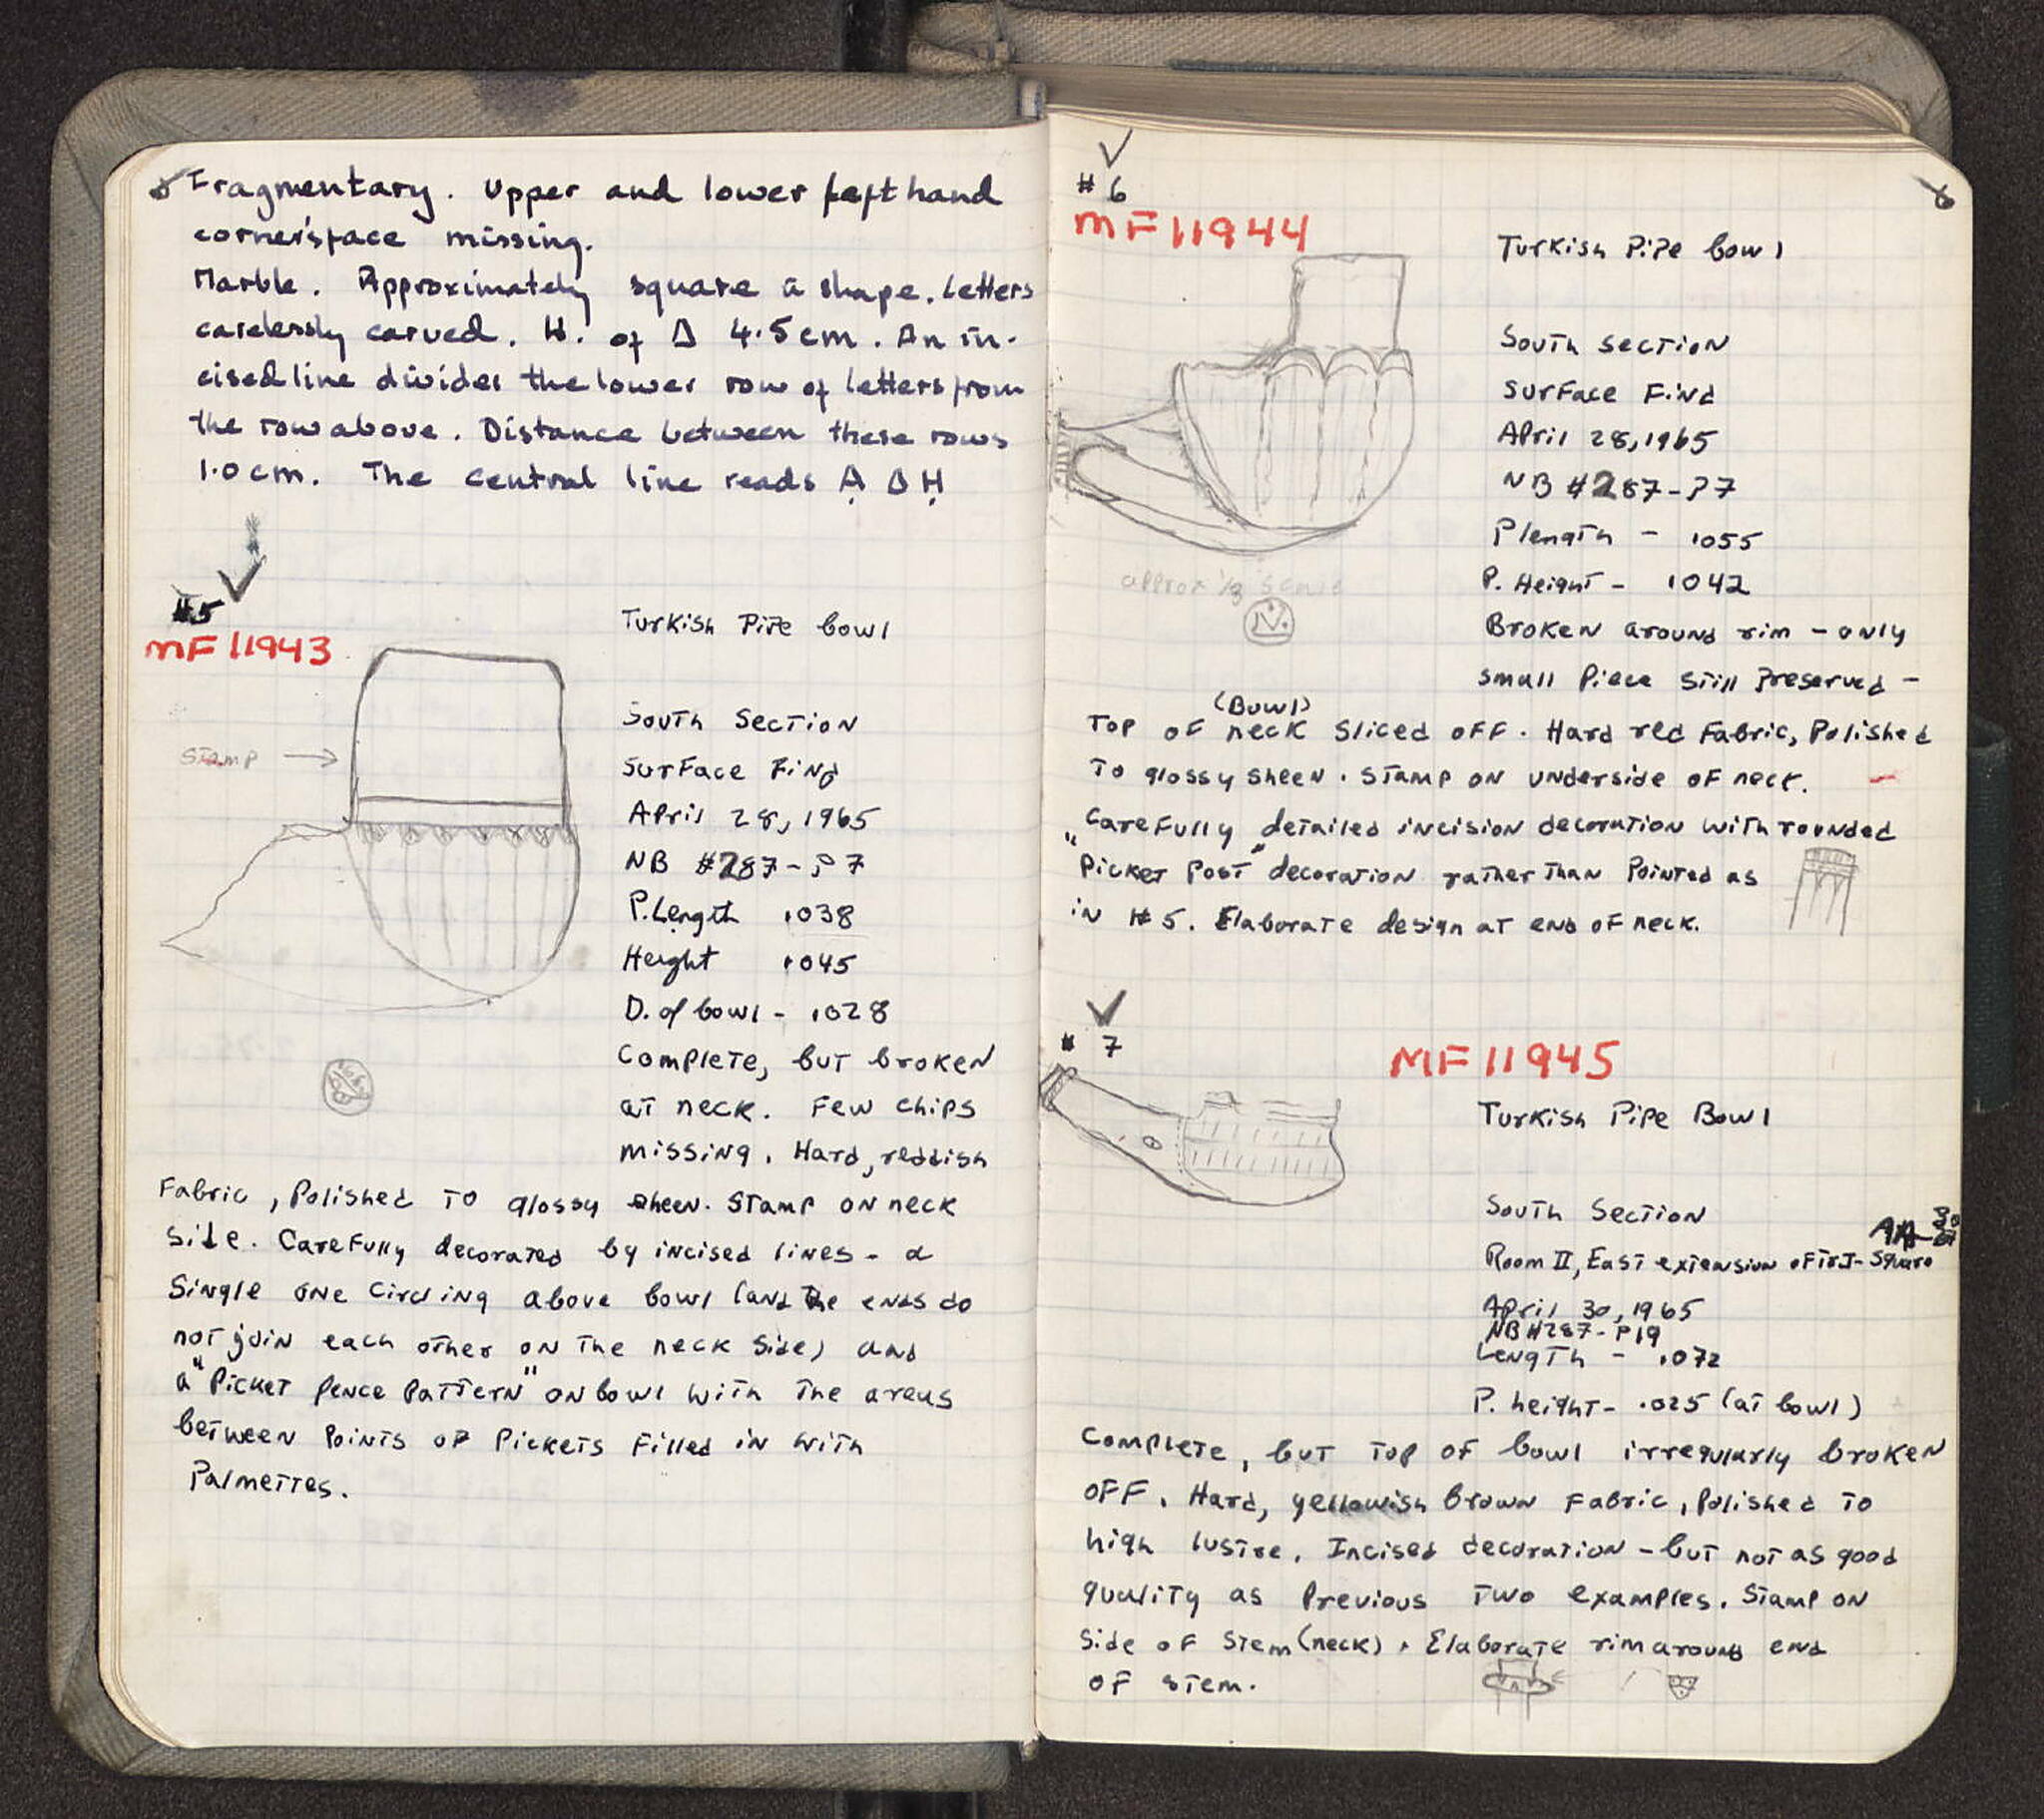 Fragmentary. Upper and lower left hand
corners face missing.
Marble. Approximately square in shape. Letters
carelessly carved. H. of Δ 4.5cm. An in-
cised line divides the lower row of letters from
the row above. Distance between these rows
1.0cm. The central line reads Ạ Δ Ḥ
#5
MF 11943
Turkish Pipe bowl
Stamp →
South Section
Surface Find
April 28, 1965
NB #287-P7
P.Length .038
Height .045
D. of bowl - .028
Complete, but broken
at neck. Few chips
missing. Hard, reddish
Fabric, Polished To glossy sheen. Stamp on neck
side. Carefully decorated by incised lines - a
Single one Circling above bowl (and The ends do
not join each other on The neck side) and
a "Picket fence Pattern" on bowl with The areas
between Points of Pickets Filled in with
Palmettes.
6
#6
MF 11944
Turkish Pipe bowl
South section
Surface Find
April 28, 1965
NB #287-P7
P length - .055
P. Height - .042
approx 1/3 scale
N.
Broken around rim - only
small Piece still Preserved -
(Bowl)
Top of neck sliced off. Hard red Fabric, Polished
To glossy sheen. Stamp on underside of neck.
Carefully detailed incision decoration with rounded
"Picket Post" decoration rather Than Pointed as
in #5. Elaborate design at end of neck.
# 7
MF 11945
Turkish Pipe Bowl
South Section
Room II, East extension of First Square
April 30, 1965
NB #287-P19
Length - .072
P. height - .025 (at bowl)
Complete, but Top of bowl irregularly broken
off. Hard, yellowish Brown Fabric, Polished To
high lustre. Incised decoration - but not as good
quality as Previous Two examples. Stamp on
Side of Stem (neck). Elaborate rim around end
of stem.